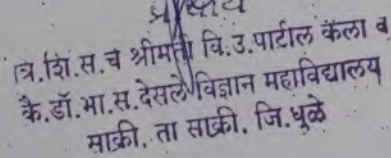 प्राचार्य
वि.शि.स.च श्रीमती वि.उ.पाटील कला व
कै.डॉ.भा.स.देसले विज्ञान महाविद्यालय
साक्री, ता साक्री. जि.धुळे